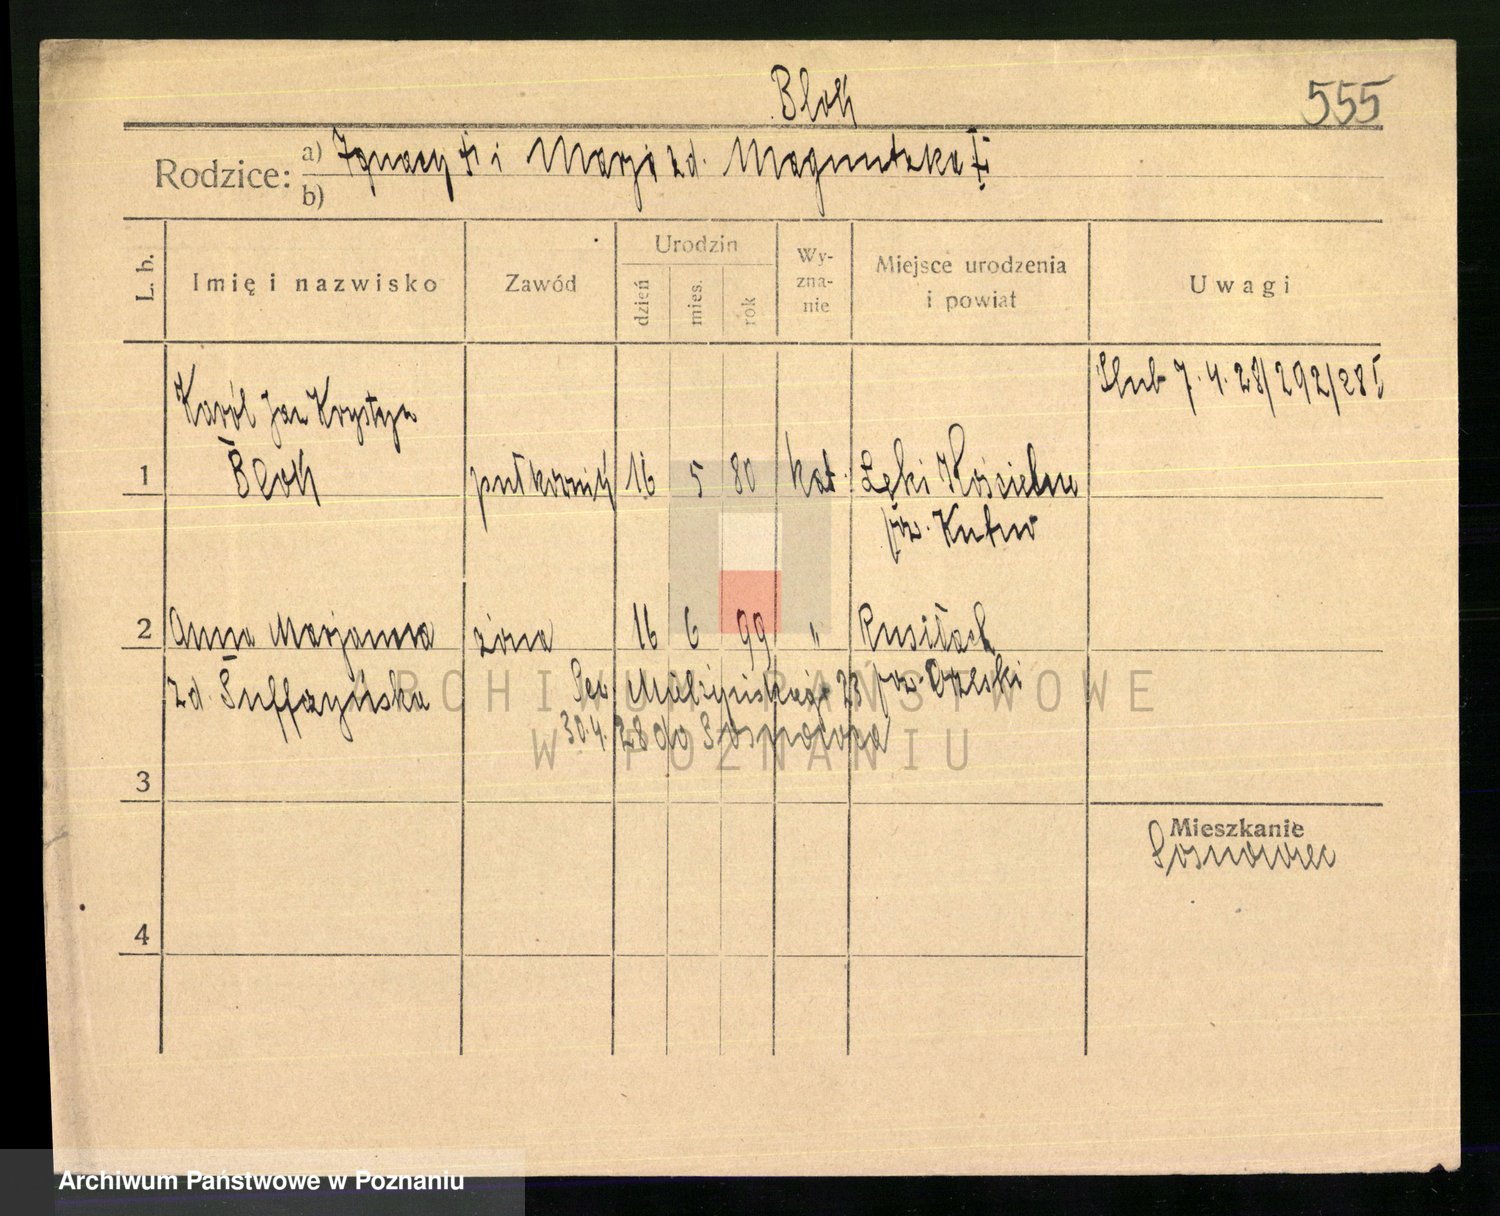 Blok
555
Rodzice:
a) Ignacy † i Marja zd. Maguntzka †
b)
L. b.
Imię i nazwisko
Zawód
Urodzin
dzień
mies.
rok
Wy-
zna-
nie
Miejsce urodzenia
i powiat
Uwagi
Ślub 7. 4. 28/292/28
Karól Jan Krystyn
1 Blok pułkownik 16 5 80 kat. Łęki Kościelne
pow. Kutno
2 Anna Marjanna żona 16 6 99 " Rusiłach
zd. Suffczyńska 23 pow. Orzeski
30.4.28 do Sosnowca
ARCHIWUM PAŃSTWOWE
W POZNANIU
3
Mieszkanie
Sosnowiec
4
Archiwum Państwowe w Poznaniu